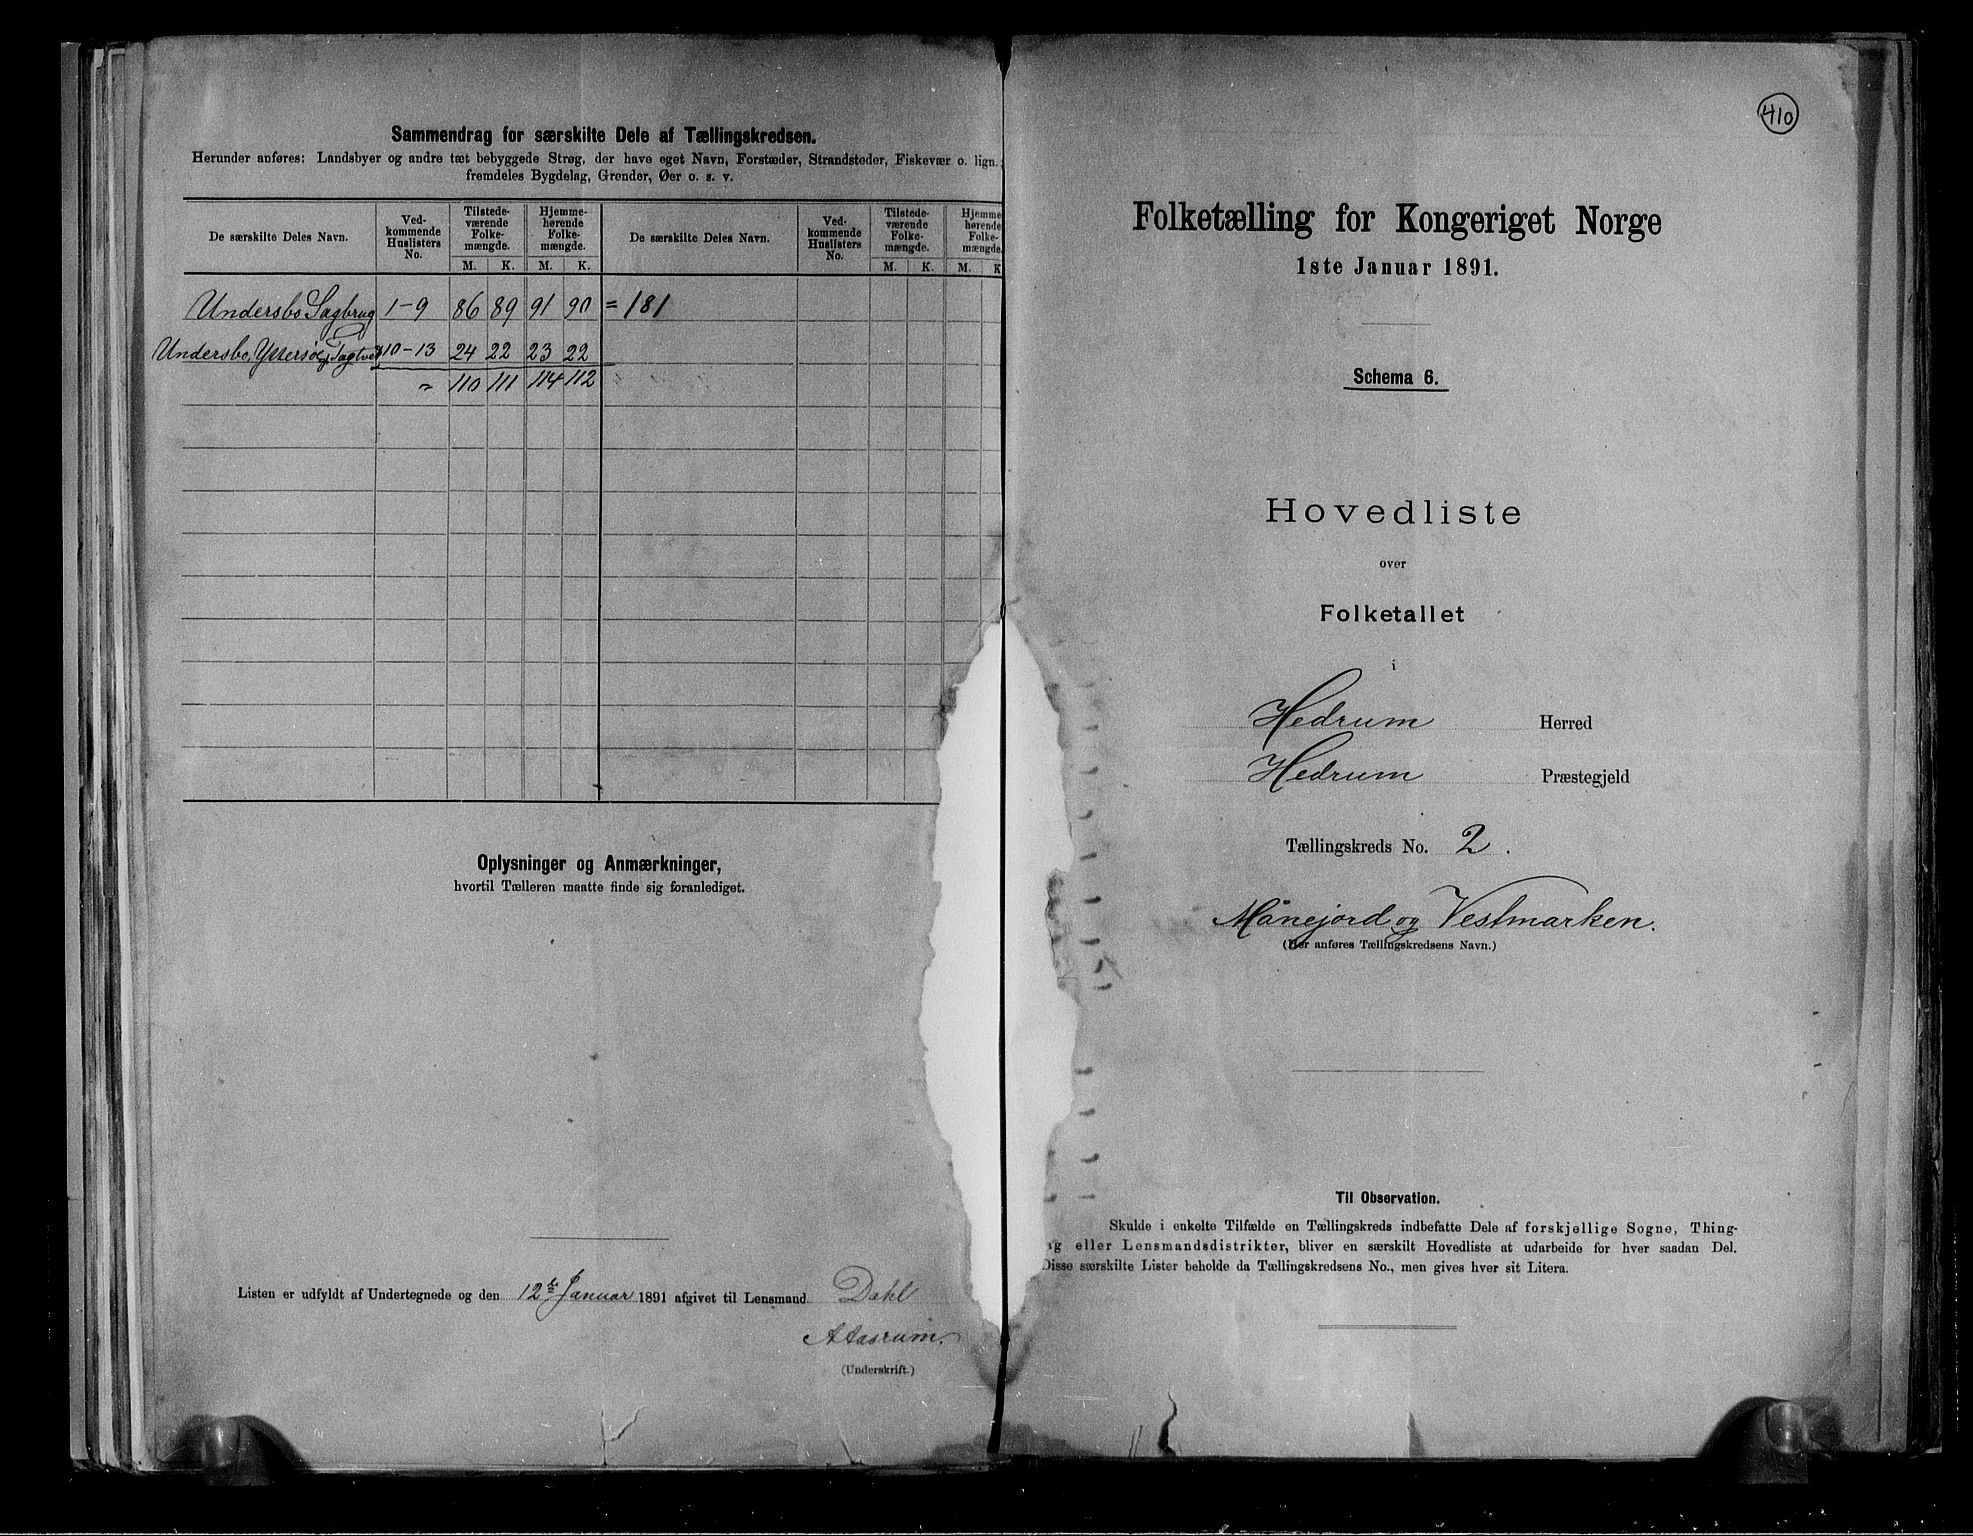 Sammendrag for særskilte Dele af Tællingskredsen.
Herunder anføres: Landsbyer og andre tæt bebyggede Strøg, der have eget Navn, Forstæder, Strandsteder, Fiskevær o. lign.;
fremdeles Bygdelag, Grender, Øer o. s. v.
De særskilte Deles Navn. Ved-kommende Huslisters No. Tilstede-værende Folke-mængde. Hjemme-hørende Folke-mængde. De særskilte Deles Navn. Ved-kommende Huslisters No. Tilstede-værende Folke-mængde. Hjemme-hørende Folke-mængde.
M. K. M. K. M. K. M. K
Undersbo Sagbrug 1-9 86 89 91 90 = 181
Undersbo, Yttersøe, 10-13 24 22 23 22
" 110 111 114 112
Oplysninger og Anmærkninger,
hvortil Tælleren maatte finde sig foranlediget.
Listen er udfyldt af Undertegnede og den 12te Januar 1891 afgivet til Lensmand Dahl
(Underskrift.)
410
Folketælling for Kongeriget Norge
1ste Januar 1891.
Schema 6.
Hovedliste
over
Folketallet
i
Hedrum Herred
Hedrum Præstegjeld
Tællingskreds No. 2.
Månejord og Vestmarken.
(Her anføres Tællingskredsens Navn.)
Til Observation.
Skulde i enkelte Tilfælde en Tællingskreds indbefatte Dele af forskjellige Sogne, Thing-
ag eller Lensmandsdistrikter, bliver en særskilt Hovedliste at udarbeide for hver saadan Del.
Disse særskilte Lister beholde da Tællingskredsens No., men gives hver sit Litera.